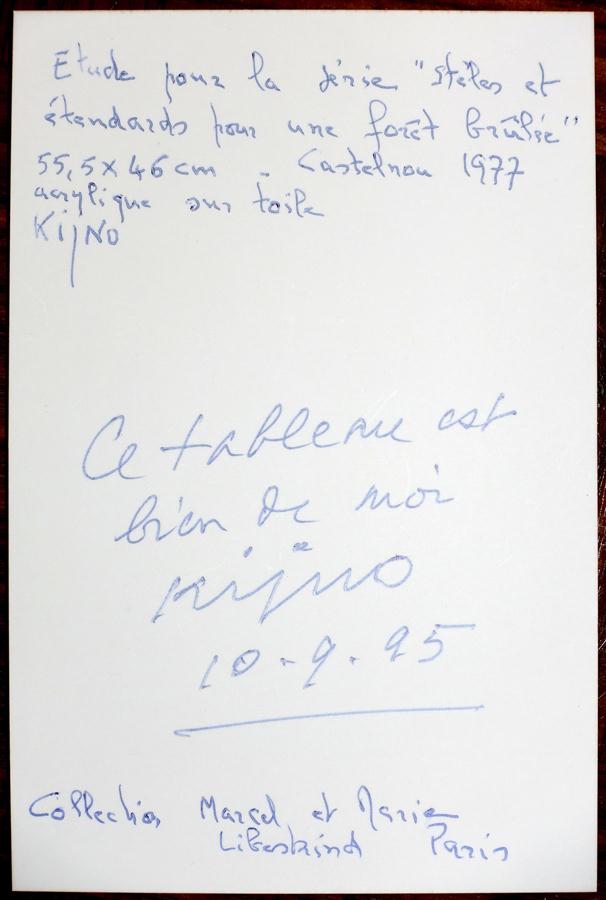 Etude pour la série "Stèles et
étendards pour une forêt brûlée"
55,5 x 46 cm - Castelnou 1977
acrylique sur toile
KIJNO
Ce tableau est
bien de moi
Kijno
10-9-95
Collection Marcel et Marie
Libestrind Paris